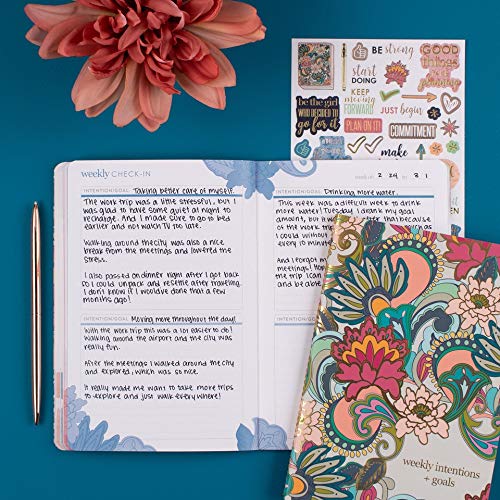 weekly CHECK-IN
INTENTION/GOAL: Taking better care of myself.
The work trip was a little stressful, but I
was glad to have some quiet at night to
recharge. And I made sure to go to bed
earlier and not watch TV too late.
Walking around the city was also a nice
break from the meetings and lowered the
stress.
I also passed on dinner right after I got back
so I could unpack and resettle after traveling.
I don't know if I would've done that a few
months ago!
INTENTION/GOAL: Moving more throughout the day!
With the work trip this was a lot easier to do!
Walking around the airport and the city was
really fun.
After the meetings I walked around the city
and explored, which was so nice.
It really made me want to take more trips
to explore and just walk everywhere!
week of: 2 24 to 3 1
INTENTION/GOAL: Drinking more water.
This was a difficult week to drink
more water! Tuesday I drank my goal
amount, but
of the work trip
I could without
every 10 minute
And I forgot
meetings! Ho
the trip I can
and be able
BE strong
start
DOING
GOOD
things
planning
KEEP
MOVING
FORWARD
JUST begin
be the girl
WHO DECIDED TO
go for it
PLAN ON IT
COMMITMENT
make
weekly intentions
+ goals